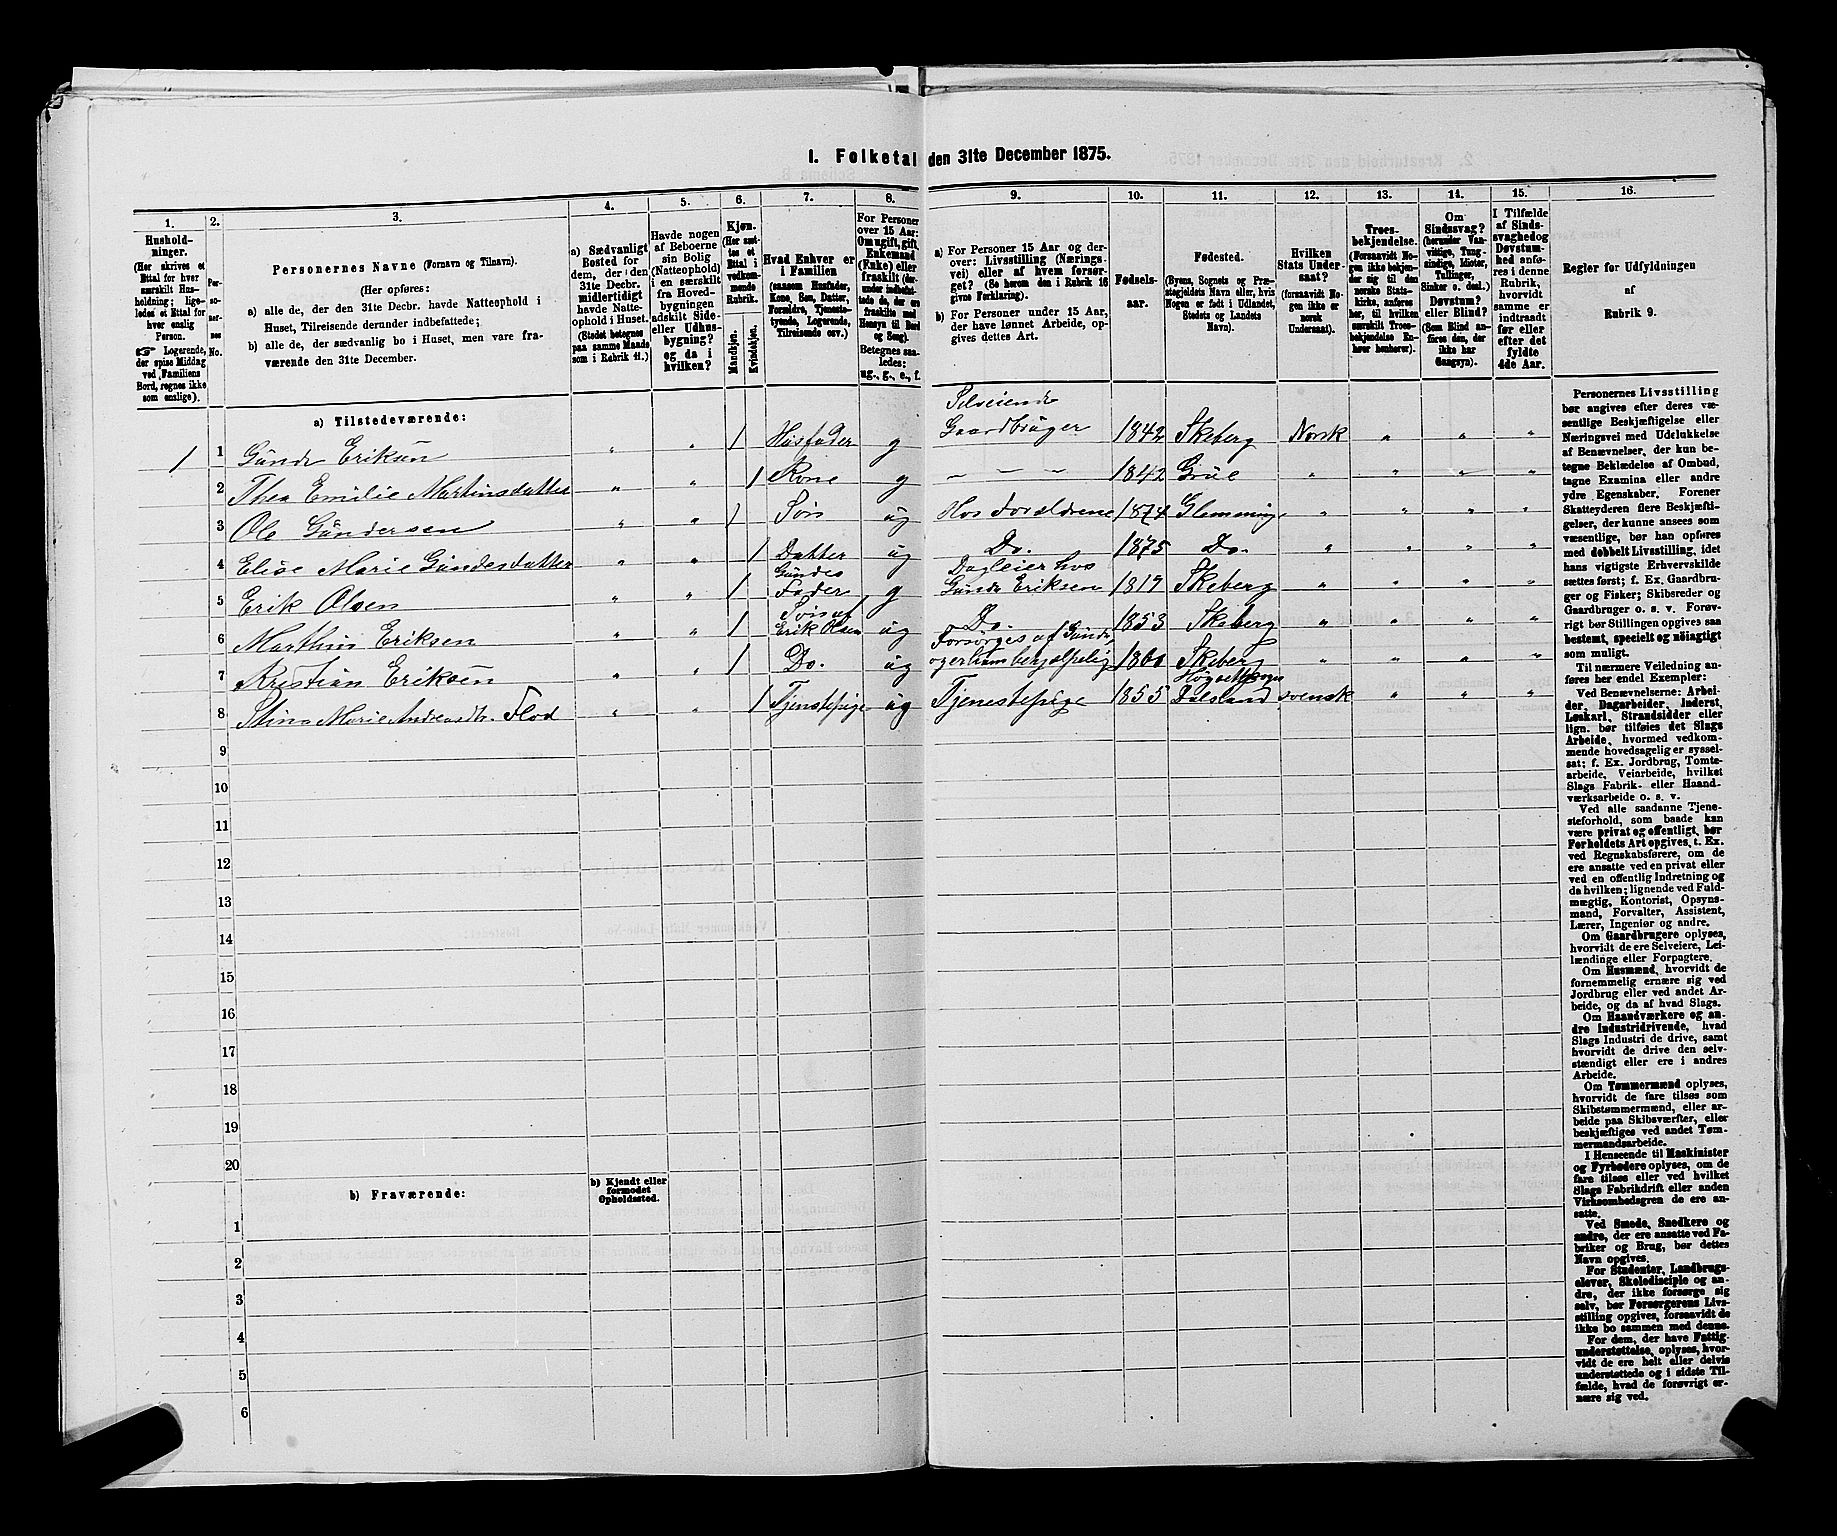 1. Folketal den 31te December 1875.
1. 2. 3. 4. 5. 6. 7. 8. 9. 10. 11. 12. 13. 14. 15. 16.
Hushold-
ninger.
(Her skrives et
Ettal for hver
særskilt Hus-
holdning; lige-
ledes et Ettal for
hver enslig
Person.
☞ Logerende,
der spise Middag
ved Familiens
Bord, regnes ikke
som enslige).
Per-
so-
ner-
nes
No.
Personernes Navne (Fornavn og Tilnavn).
(Her opføres:
a) alle de, der den 31te Decbr. havde Natteophold i
Huset, Tilreisende derunder indbefattede;
b) alle de, der sædvanlig bo i Huset, men vare fra-
værende den 31te December.
a) Sædvanligt
Bosted for
dem, der den
31te Decbr.
midlertidigt
havde Natte-
ophold i Huset.
(Stedet betegnes
paa samme Maade
som i Rubrik 11.)
Havde nogen
af Beboerne
sin Bolig
(Natteophold)
i en særskilt
fra Hoved-
bygningen
adskilt Side-
eller Udhus-
bygning?
og da i
hvilken?
Kjøn.
(Her sæt-
tes et
Ettal i
vedkom-
mende
Rubrik.
Mandkjøn.
Kvindekjøn.
Hvad Enhver er
i Familien
(saasom Husfader,
Kone, Søn, Datter,
Forældre, Tjeneste-
tyende, Logerende,
Tilreisende osv.)
For Personer
over 15 Aar:
Om ugift, gift,
Enkemand
(Enke) eller
fraskilt (der-
under indbefat-
tede de, der ere
fraskilte med
Hensyn til Bord
og Seng).
Betegnes saa-
ledes:
ug., g., e., f.
a) For Personer 15 Aar og der-
over: Livsstilling (Nærings-
vei) eller af hvem forsør-
get? (Se herom den i Rubrik 16
givne Forklaring).
b) For Personer under 15 Aar,
der have lønnet Arbeide, op-
gives dettes Art.
Fødsels-
aar.
Fødested.
(Byens, Sognets og Præ-
stegjeldets Navn eller, hvis
Nogen er født i Udlandet,
Stedets og Landets
Navn).
Hvilken
Stats Under-
saat?
(forsaavidt No-
gen ikke er
norsk
Undersaat).
Troes-
bekjendelse.
(Forsaavidt No-
gen ikke bekjen-
der sig til den
norske Stats-
kirke, anføres
her, til hvilken
særskilt Troes-
bekjendelse En-
hver henhører).
Om
Sindssvag?
(herunder Van-
vittige, Tung-
sindige, Idioter,
Tullinger,
Sinker o. desl.)
Døvstum?
eller Blind?
(Som Blind an-
føres den, der
ikke har
Gangsyn).
I Tilfælde
af Sinds-
svaghed og
Døvstum-
hed anfø-
res i denne
Rubrik,
hvorvidt
samme er
indtraadt
før eller
efter det
fyldte
4de Aar.
Regler for Udfyldningen
af
Rubrik 9.
a) Tilstedeværende:
1 1 Günder Eriksen „ „ 1 Husfader g Selveiende Gaardbrüger 1842 Skeberg Norsk „ „ „
2 Thea Emilie Martinsdatter „ „ 1 Kone g — — — 1842 Grüe „ „ „ „
3 Ole Gündersen „ „ 1 Søn ug Hos Forældrene 1874 Glemminge „ „ „ „
4 Elise Marie Gündesdatter „ „ 1 Datter ug Do. 1875 Do. „ „ „ „
5 Erik Olsen „ „ 1 Gündes Fader g Dagleier hos Günder Eriksen 1817 Skeberg „ „ „ „
6 Marthin Eriksen „ „ 1 Søn af Erik Olsen ug Do. 1853 Skeberg „ „ „ „
7 Kristian Eriksen „ „ 1 Do. ug Forsørges af Günder, og er ham behjælpelig 1860 Skeberg „ „ „ „
8 Stina Marie Andreasdtr. Flod „ „ 1 Tjenstepige ug Tjenestepige 1855 Dalsland svensk „ „ „
9
10
11
12
13
14
15
16
17
18
19
20
b) Fraværende:
b) Kjendt eller
formodet
Opholdssted.
1
2
3
4
5
6
Personernes Livsstilling
bør angives efter deres væ-
sentlige Beskjæftigelse eller
Næringsvei med Udelukkelse
af Benævnelser, der kun be-
tegne Beklædelse af Ombud,
tagne Examina eller andre
ydre Egenskaber. Forener
Skatteyderen flere Beskjæfti-
gelser, der kunne ansees som
væsentlige, bør han opføres
med dobbelt Livsstilling, idet
hans vigtigste Erhvervskilde
sættes først; f. Ex. Gaardbru-
ger og Fisker; Skibsreder og
Gaardbruger o. s. v. Forøv-
rigt bør Stillingen opgives saa
bestemt, specielt og nøiagtigt
som muligt.
Til nærmere Veiledning an-
føres her endel Exempler:
Ved Benævnelserne: Arbei-
der, Dagarbeider, Inderst,
Løskarl, Strandsidder eller
lign. bør tilføies det Slags
Arbeide, hvormed vedkom-
mende hovedsagelig er syssel-
sat; f. Ex. Jordbrug, Tomte-
arbeide, Veiarbeide, hvilket
Slags Fabrik- eller Haand-
værksarbeide o. s. v.
Ved alle saadanne Tjene-
steforhold, som baade kan
være privat og offentligt, bør
Forholdets Art opgives, t. Ex.
ved Regnskabsførere, om de
ere ansatte ved en privat eller
ved en offentlig Indretning og
da hvilken; lignende ved Fuld-
mægtig, Kontorist, Opsyns-
mand, Forvalter, Assistent,
Lærer, Ingeniør og andre.
Om Gaardbrugere oplyses,
hvorvidt de ere Selveiere, Lei-
lændinge eller Forpagtere.
Om Husmænd, hvorvidt de
fornemmelig ernære sig ved
Jordbrug eller ved andet Ar-
beide, og da af hvad Slags.
Om Haandværkere og an-
dre Industridrivende, hvad
Slags Industri de drive, samt
hvorvidt de drive den selv-
stændigt eller ere i andres
Arbeide.
Om Tømmermænd oplyses,
hvorvidt de fare tilsøs som
Skibstømmermænd, eller ar-
beide paa Skibsværfter, eller
beskjæftiges ved andet Tøm-
mermandsarbeide.
I Henseende til Maskinister
og Fyrbødere oplyses, om de
fare tilsøs eller ved hvilket
Slags Fabrikdrift eller anden
Virksomhedsgren de ere an-
satte.
Ved Smede, Snedkere og
andre, der ere ansatte ved Fa-
briker og Brug, bør dettes
Navn opgives.
For Studenter, Landbrugs-
elever, Skoledisciple og an-
dre, der ikke forsørge sig
selv, bør Forsørgerens Livs-
stilling opgives, forsaavidt de
ikke bo sammen med denne.
For dem, der have Fattig-
understøttelse, oplyses, hvor-
vidt de ere helt eller delvis
understøttede og i sidste Til-
fælde, hvad de forøvrigt er-
nære sig ved.